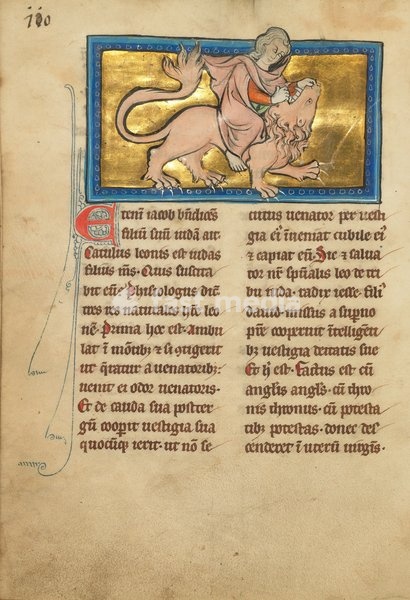 Etenim iacob bn̄dicens
filium suum iudam ait
Catulus leonis est iudas
filius m̄s. Quis suscita
bit eum. Phisiologus dicit
tres res naturales hr̄e leo
nē. Prima hoc est. Ambu
lat ī mōtib; & si ɔtigerit
ut q̄ratur a uenatorib;
uenit ei odor uenatoris.
Et de cauda sua poster
gū coop̄it uestigia sua
quocūq; ierit. ut nō se
cutus uenator per uesti
gia ei' inueniat cubile ei'
& capiat eū. Sic & salua
tor nr̄ spūalis leo de tri
bu iuda. radix iesse. fili'
dauid. missus a superno
pr̄e cooperuit intelligēti
b; uestigia deitatis sue
Et h' est. Factus est cū
anglis angl's. cū thro
nis thronus. cū potesta
tib; potestas. donec des
cenderet ī uterū uirginis.